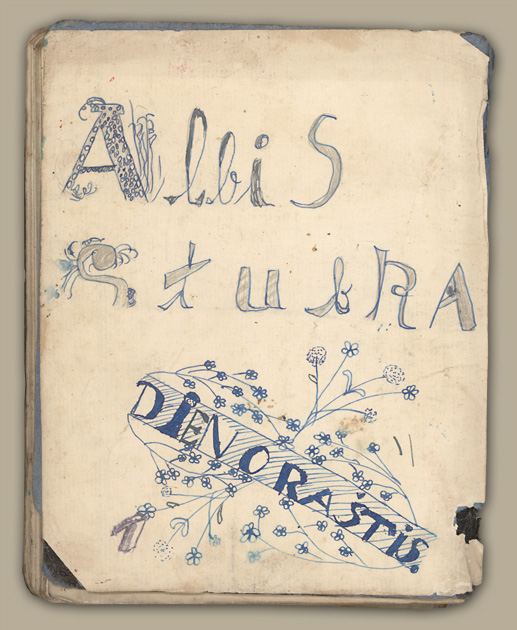 Albis
StubRA
DIENORAŠTIS.
1